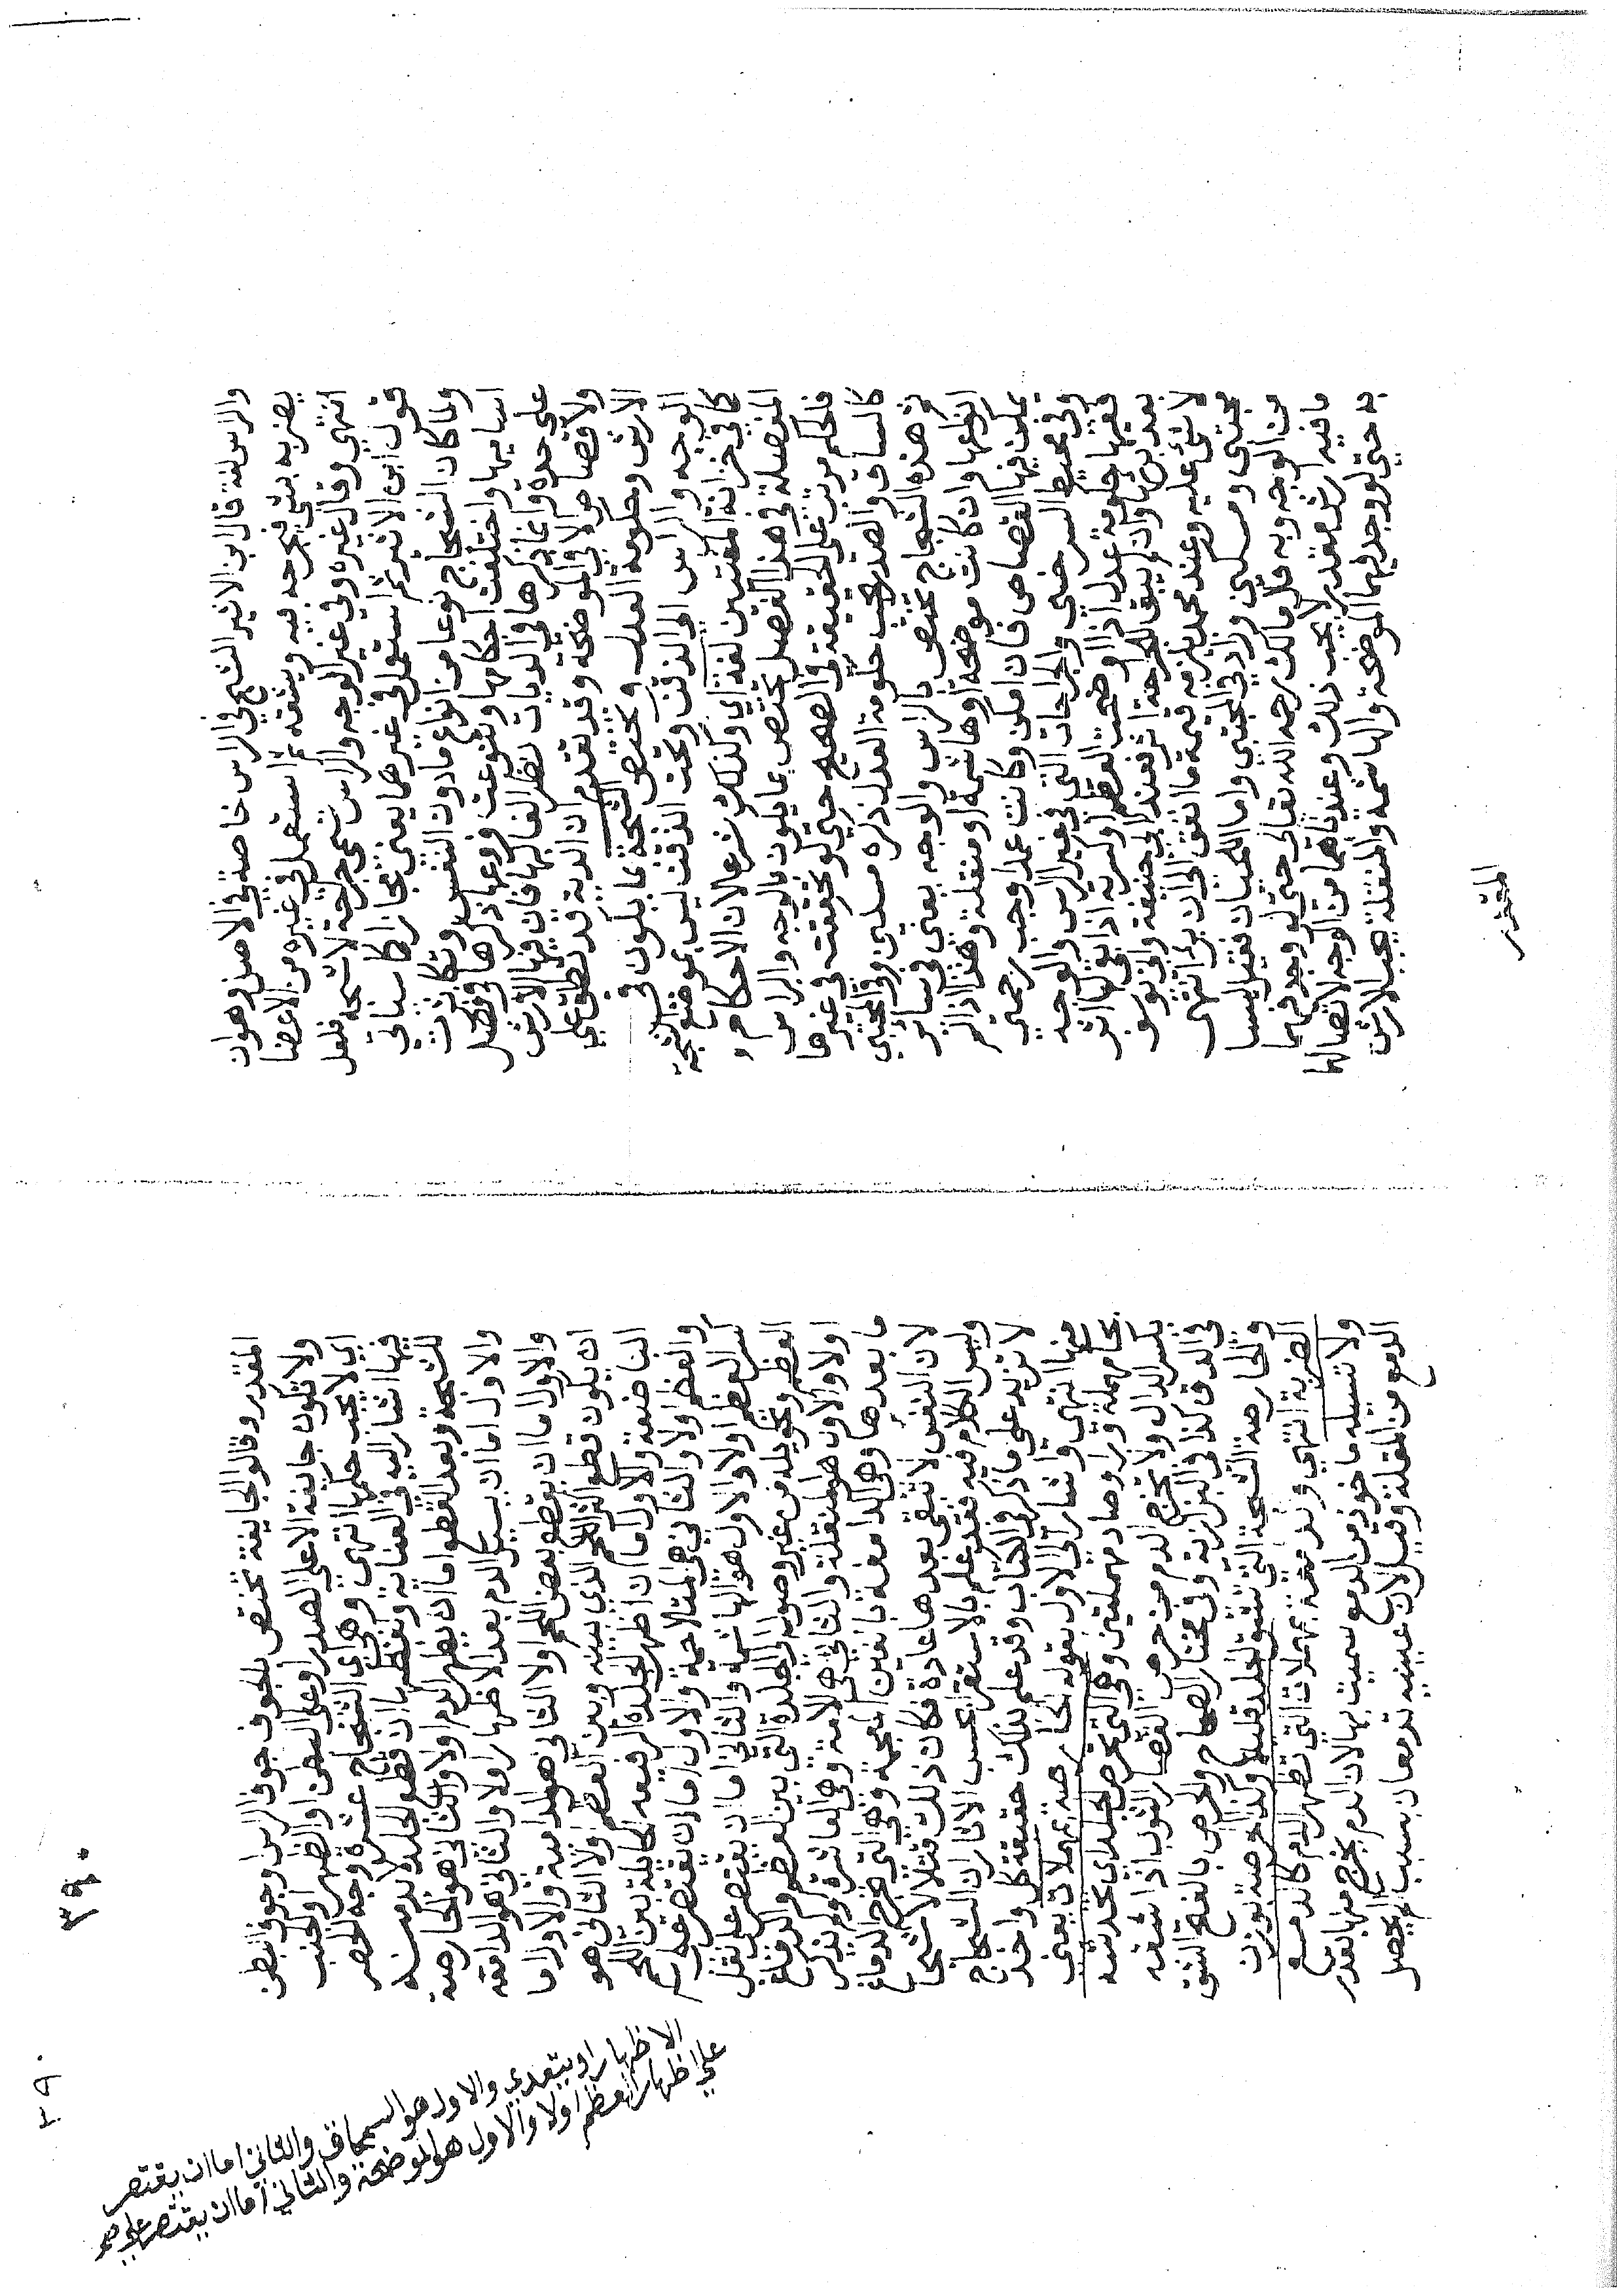 والراس لغة قال ابن الاثير الشج في الراس خاصة في الاصل وهو ان
يضربه بشي فيجرحه فيه ويشقه ثم استعمل في غيره من الاعضا
انتهي وقال غيره وفي غير الوجه والراس تسمي جراحة لا شجه فلعل
قول ابن الاثير ثم استعمل في غيرهما يعني مجازا كما سياتي
ولما كان الشجاج نوعا من انواع ما دون النفس وتكاثرت
اساميها واختلفت احكامها وتنوعت فروعها ذكرها في فصل
علي حدة وانما ذكرها في الديات نظرا لغالبها فان فيها الارش
ولا قصاص الا في الموضحة وقد تقدم ان الدية قد تطلق علي
الارش وحكومة العدل وتختص الشجة بما يكون في
الوجه والراس الي الذقن وتحت الذقن ليس بموضع الشجة
كما في خزانة المفتين لغة اي وكذلك شرعا لان الاحكام
المفصلة في هذا الفصل تختص بما يكون بالوجه والراس
فالحكم مرتب علي الحقيقة في الصحيح حتي لو تحققت في غيرها
كالساق واليد يجب حكومة العدل ذكره مسكين وفي المجتبي
ثم هذه الشجاج تختص بالراس والوجه يعني في سائر
انواعها وان كانت موضحة او هاشمة او منقلة وهذا اذا لم
يمكن فيها القصاص فان امكن وكانت عمدا وجب
وفي محيط السرخسي والجراحات التي في غير الراس والوجه
ففيها حكومة عدل اذا اوضحت العظم او كسرته اذا بقي لها اثر
بعد برئها وان لم يبق للجراحة اثر فعند ابي حنيفة وابي يوسف
لا شئ عليه وعند محمد يلزمه قيمة ما انفق الي ان برا انتهي
مجتبي ومسكين وزاد في المجتبي واما اللحيان فقيل ليسا
من الوجه وبه قال مالك رحمه الله تعالي حتي لو وجد فيهما
ما فيه ارش مقدر لا يجب ذلك وعندنا هما من الوجه لاتصالهما
به حتي لو وجد فيهما الموضحة والهاشمة والمنقلة يجب الارش
المقدر
المقدر وقالوا الجايفة تختص بالجوف جوف الراس او جوف البطن
ولا تكون جايفة الا علي الصدر او علي البطن او الظهر او الجنب
اي لا يجب حكمها انتهي وهي اي الشجاج عشرة وجه الحصر
فيها اشار اليه في العناية ونظمها ان قطع الجلد لا بد منه
للشجة وبعد القطع اما ان يظهر الدم اولا والثاني هو الحارصة
والاول اما ان يسيل الدم بعد الاظهار اولا والثاني هو الدامعة
والاول اما ان يقطع بعض اللحم اولا الثاني هو الدامية والاول اما
ان يكون قطع اكثر اللحم الذي بينه وبين العظم اولا الثاني هو
الباضعة والاول اما ان اظهر الجلدة الرقيقه الحايلة بين اللحم
والعظم اولا والثاني هي المتلاحمة والاول اما ان يقتصر علي
كسر العظم اولا والاول هو الهاشمة والثاني اما ان يقتصر علي نقل
العظم وتحويله من غير وصوله الي الجلدة التي بين العظم والدماغ
اولا والاول هو المنقلة والثاني هي الامة وهي العاشرة ولم يذكر
ما بعدها وهي الدامغة بالغين المعجمة وهي التي تخرج الدماغ
لان النفس لا تبقي بعدها عادة فكان ذلك قتلا لا شجا
وليس الكلام فيه فقد علم بالاستقرا بحسب الاثار ان الشجاج
لا تزيد علي ما ذكر في الكتاب وقد علم بذلك حقيقة كل واحد
منها انتهي واشار الي الاول بقوله الحارصة بمهملات يعني
بحا مهملة ورا وصاد مهملتين وهي التي تحرص الجلد اي تخدشه
بكسر الدال ولا تخرج الدم من حرص القصار الثوب اذا شقه
في الدق كذا في البزازية وفي مختار الصحاح والحرص بالفتح الشق
والحارصة الشجة التي تشق الجلد قليلا وكذا الحرصة بوزن
الضربة انتهي والدامعة بمهملات التي تظهر الدم كالدمع
ولا تسيله ماخوذ من الدمع سميت بها لان الدم يخرج منها بقدر
الدمع من المقلة وقيل لان عينيه تدمعان بسبب الم يحصل
الاظهار او يتعدي والاول هو السمحاق والثاني اما ان يقتصر
علي اظهار العظم اولا والاول هو الموضحة والثاني اما ان يقتصر علي
٣٩٠
٢٩٠